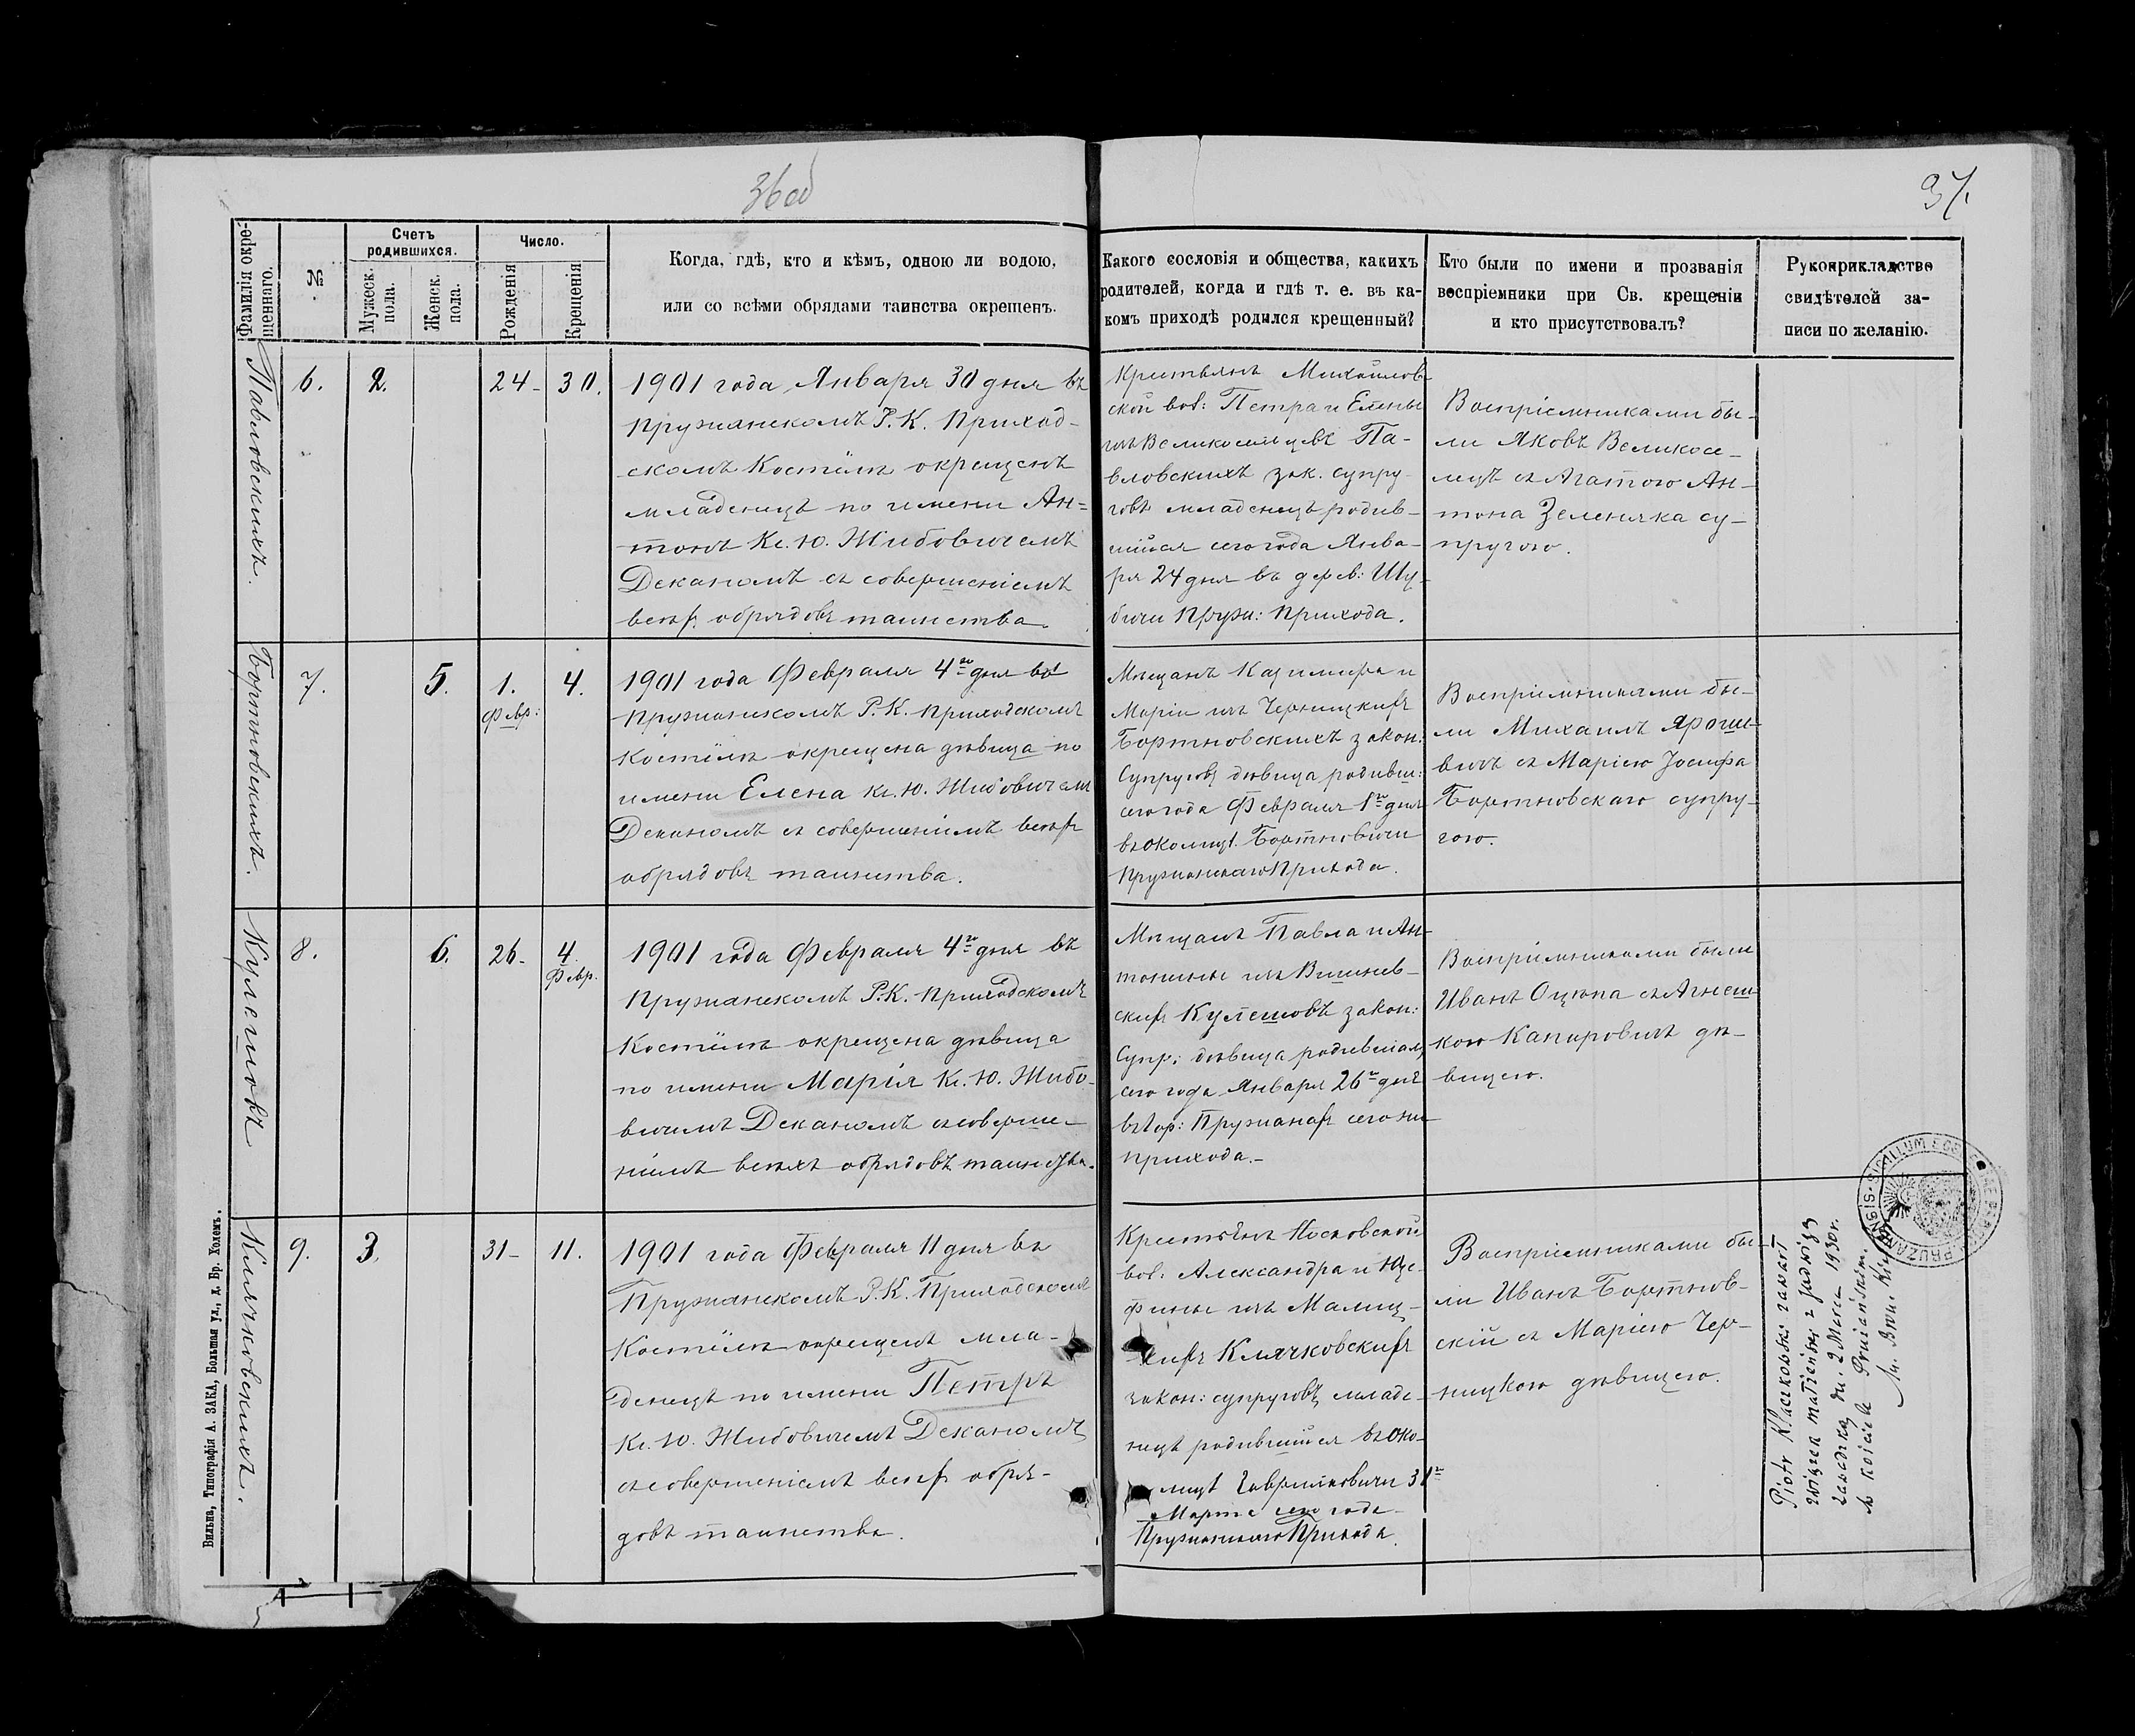 36об
37.
Фамилія окре-
щеннаго.
№
Счетъ
родившихся.
Мужеск.
пола.
Женск.
пола.
Число.
Рожденія
Крещенія
Когда, гдѣ, кто и кѣмъ, одною ли водою,
или со всѣми обрядами таинства окрещенъ.
Какого сословія и общества, какихъ
родителей, когда и гдѣ т. е. въ ка-
комъ приходѣ родился крещенный?
Кто были по имени и прозванія
воспріемники при Св. крещеніи
и кто присутствовалъ?
Рукоприкладство
свидѣтелей за-
писи по желанію.
Павловскихъ.
6.
2.
24-
30.
1901 года Января 30 дня въ
Пружанскомъ Р. К. Приход-
скомъ Костёлѣ окрещенъ
младенецъ по имени Ан=
тонъ Кс. Ю. Жибовичемъ
Деканомъ съ совершеніемъ
всѣх обрядовъ таинства.
Крестьянъ Михайлов-
ской вол: Петра и Елены
изъ Великосельцевъ Па-
вловскихъ зак. супру-
говъ младенецъ родив-
шійся сего года Янва-
ря 24 дня въ дерев: Шу-
бичи Пруж: Прихода.
Воспріемниками бы-
ли Яковъ Великосе-
лецъ съ Агатою Ан-
тона Зеленяка су-
пругою.
Бортновскихъ.
7.
5.
1.
Февр:
4.
1901 года Февраля 4го дня въ
Пружанскомъ Р. К. Приходскомъ
Костёлѣ окрещена дѣвица по
имени Елена Кс. Ю. Жибовичемъ
Деканомъ съ совершеніемъ всѣх
обрядовъ таинства.
Мѣщанъ Казимира и
Маріи изъ Черницких
Бортновскихъ закон:
Супруговъ дѣвица родивш:
сего года Февраля 1го дня
въ околицѣ Бортновичи
Пружанскаго Прихода.
Воспріемниками бы-
ли Михаилъ Яроше-
вичъ съ Маріею Іосифа
Бортновскаго супру-
гою.
Кулешовъ
8.
6.
26-
4.
Февр.
1901 года Февраля 4го дня въ
Пружанскомъ Р. К. Приходскомъ
Костёлѣ окрещена дѣвица
по имени Марія Кс. Ю. Жибо-
вичемъ Деканомъ съ соверше-
ніемъ всѣхъ обрядовъ таинства.
Мѣщанъ Павла и Ан-
тонины изъ Вишнев-
ских Кулешовъ закон:
Супр: дѣвица родившаяся
сего года Января 26го дня
въ гор: Пружанах сего же
прихода.-
Воспріемниками были
Иванъ Оцюпа съ Агнеш-
кою Капировичъ дѣ-
вицею.
Клячковскихъ.
9.
3.
31-
11.
1901 года Февраля 11 дня въ
Пружанскомъ Р. К. Приходскомъ
Костёлѣ окрещенъ мла-
денецъ по имени Петръ
Кс. Ю. Жибовичемъ Деканомъ
съ совершеніемъ всѣх обря-
довъ таинства.
Крестьянъ Носковской
вол: Александра и Юзе-
фины изъ Малиц-
ких Клячковских
закон: супруговъ младе-
нецъ родившійся въ око-
лицѣ Гавриловичи 31го
Марта сего года
Пружанскаго Прихода.
Воспріемниками бы-
ли Иванъ Бортнов-
скій съ Маріею Чер-
ницкою дѣвицею.
Piotr Klaczkowski zawarł
związek małżeński z Jadwigą
dn. 2 Marca 1930 r.
w kościele Prużańskim.
SIGILLUM
Вильна, Типографія А. ЗАКА, Большая ул., д. Бр. Холемъ.